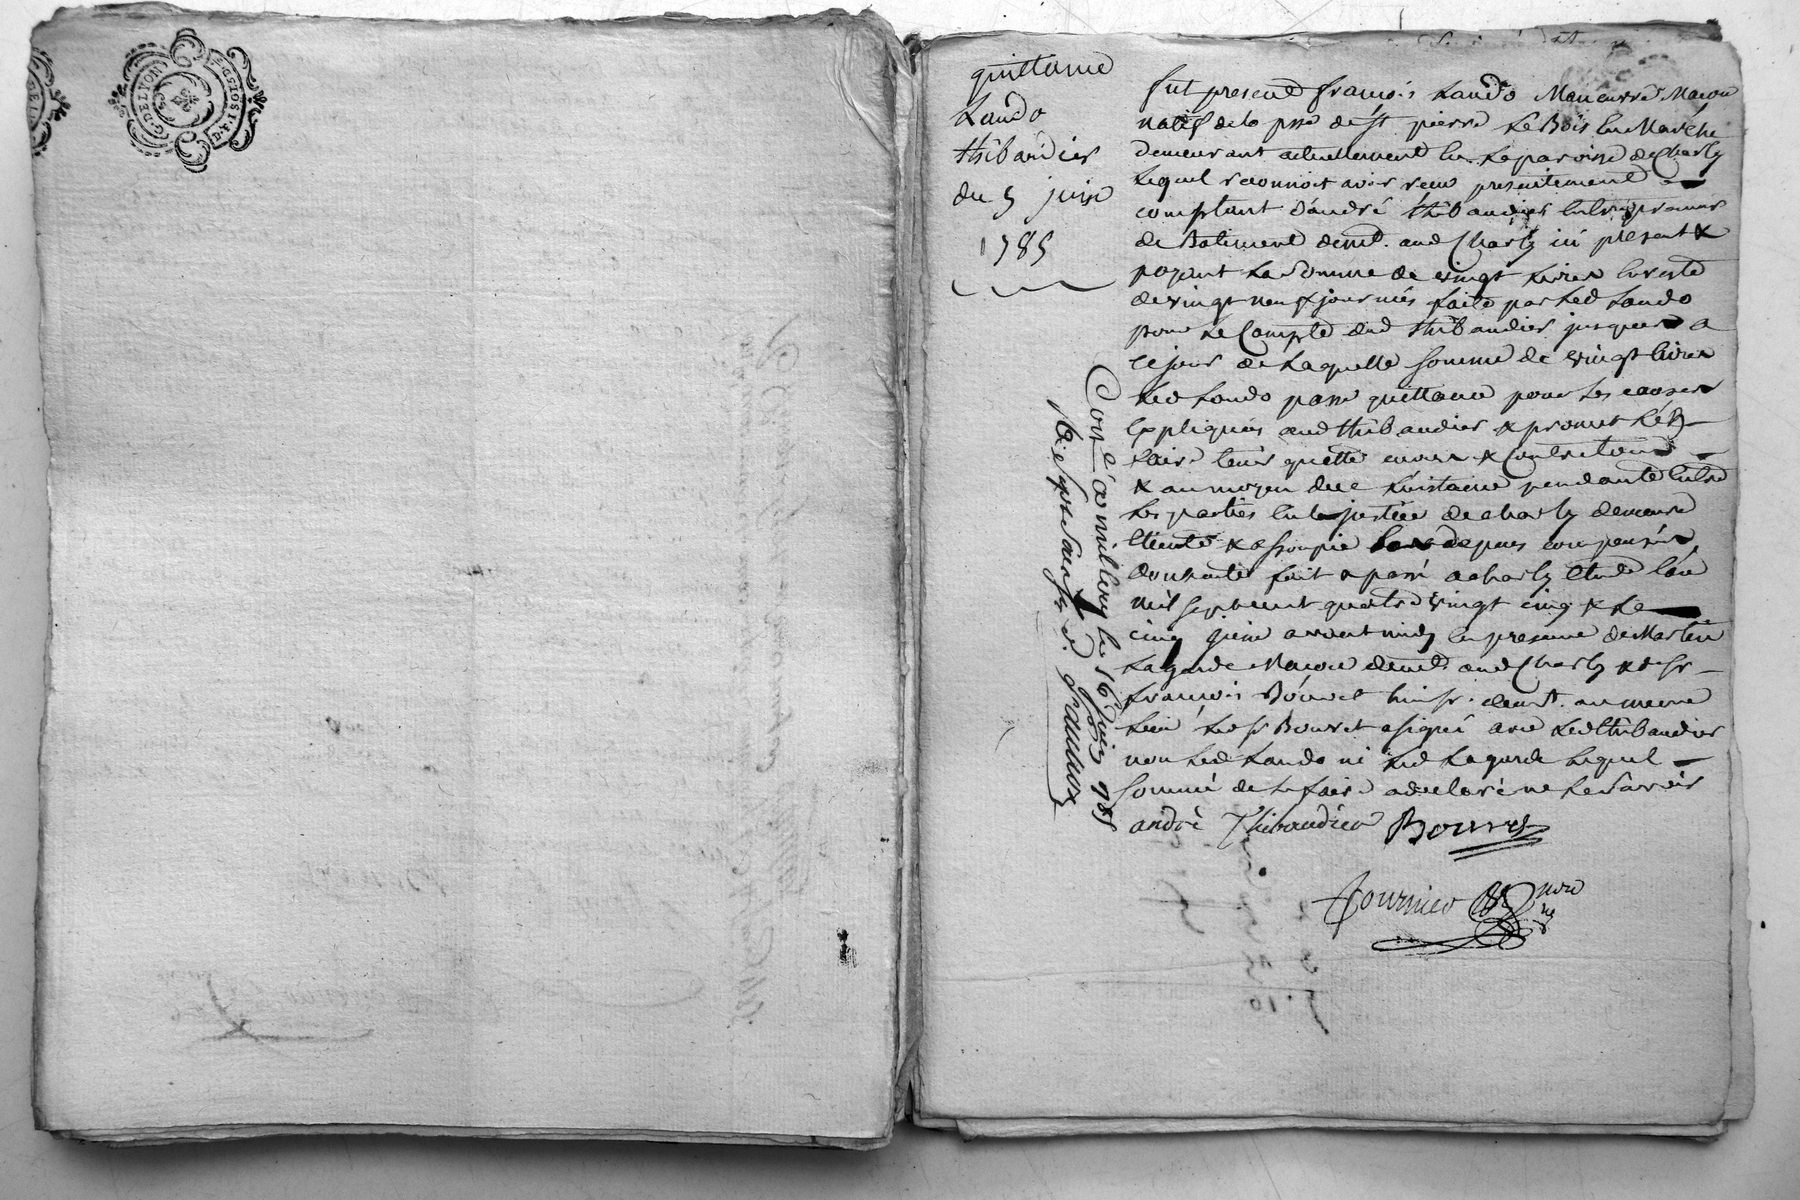 G. DE LYON
quittance
Lando
thibaudier
du 5 juin
1785
fut present francois Lando Maneuvre Macon
natif de la psse de st pierre Le Bois en Marche
demeurant actuellement en La paroisse de Charly
Lequel reconnoit avoir receu presentement
comptant d'andré thibaudier entrepreneur
de Batiment demt. aud Charly ici présent &
payant La somme de vingt Livres en reste
de vingt neuf journées faite par Led Lando
pour Le Compte dud thibaudier jusques a
ce jour de Laquelle somme de vingt Livres
Led Lando passe quittance pour Les causes
Expliquées aud thibaudier & promet L'en
faire tenir quitte envers & Contre tous
& au moyen de ce L'instance pendante entre
Les parties en La justice de charly demeure
éteinte & assoupie depens compensés
dont acte fait & passé a charly Etude L'an
mil sept cent quatre vingt cinq & Le
cinq juin avant midy en presence de Martin
Lagarde Macon demt. aud Charly & de sr
francois Bouvet huissr. demt. au meme
Lieu Led sr Bouvet a signé avec Led thibaudier
non Led Lando ni Led Lagarde Lequel
sommé de Le faire a declaré ne Le savoir
andré Thibaudier Bouvet
fournier nore
Conlé a millery le 16 juin 1785